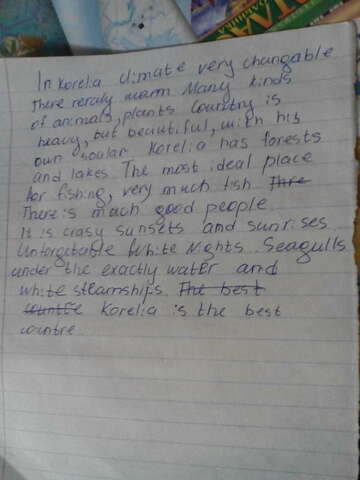 In Korelia climate very changable.
There reraly warm. Many kinds
of animals, plants Country is
heavy, but beautiful, with his
own soular Korelia has forests
and lakes. The most ideal place
for fishing, very much fish. Thre
There is much good people.
It is crasy sunsets and sunrises.
Unforgetable White Nights. Seagulls
under the exactly water and
white steamships. The best
countre Korelia is the best
countre